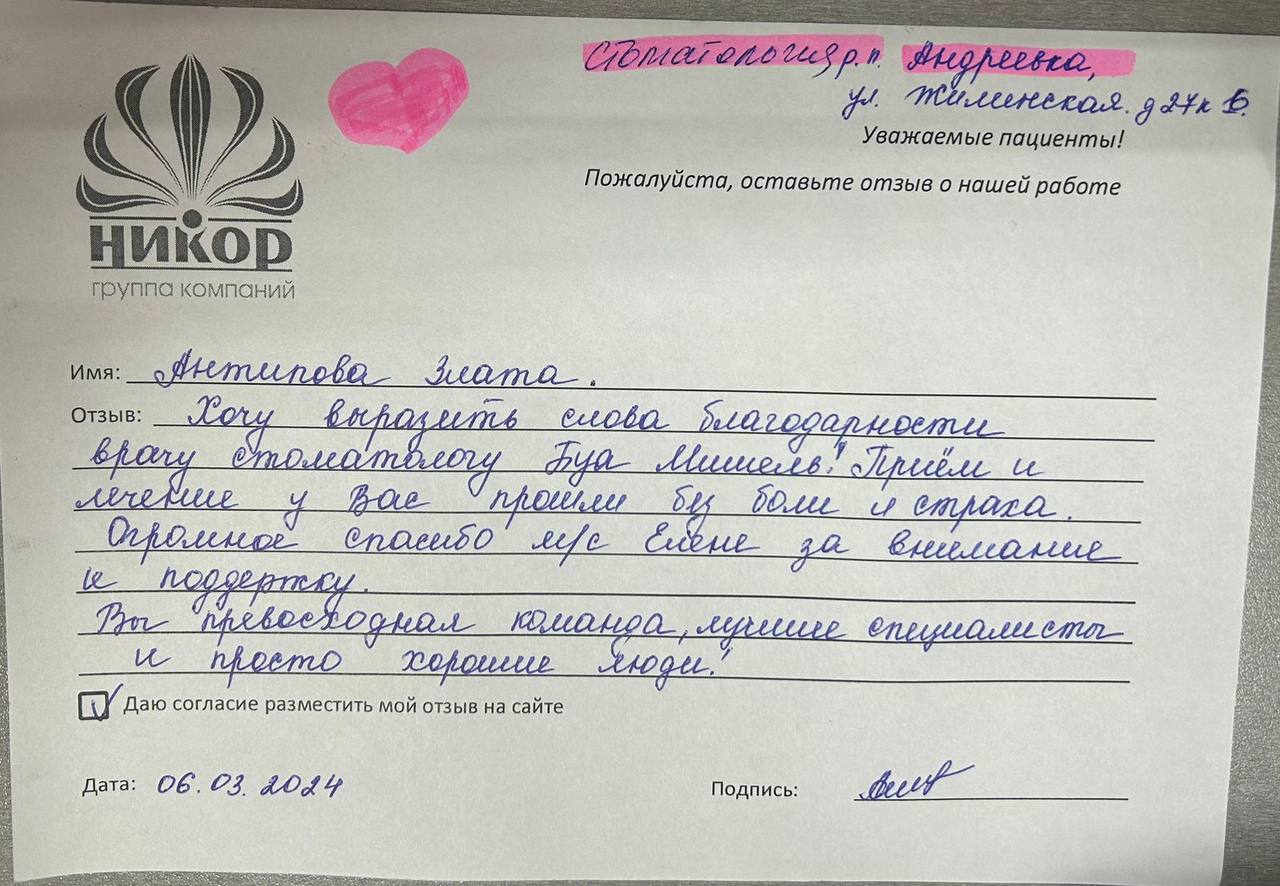 Стоматология р.п. Андреевка,
ул. Жилинская. д 27 к 6.
Уважаемые пациенты!
Пожалуйста, оставьте отзыв о нашей работе
НИКОР
группа компаний
Имя: Антипова Злата.
Отзыв: Хочу выразить слова благодарности
врачу стоматологу Буа Мишель! Приём и
лечение у Вас прошли без боли и страха.
Огромное спасибо м/с Елене за внимание
и поддержку.
Вы превосходная команда, лучшие специалисты
и просто хорошие люди!
Даю согласие разместить мой отзыв на сайте
Дата: 06.03.2024
Подпись: